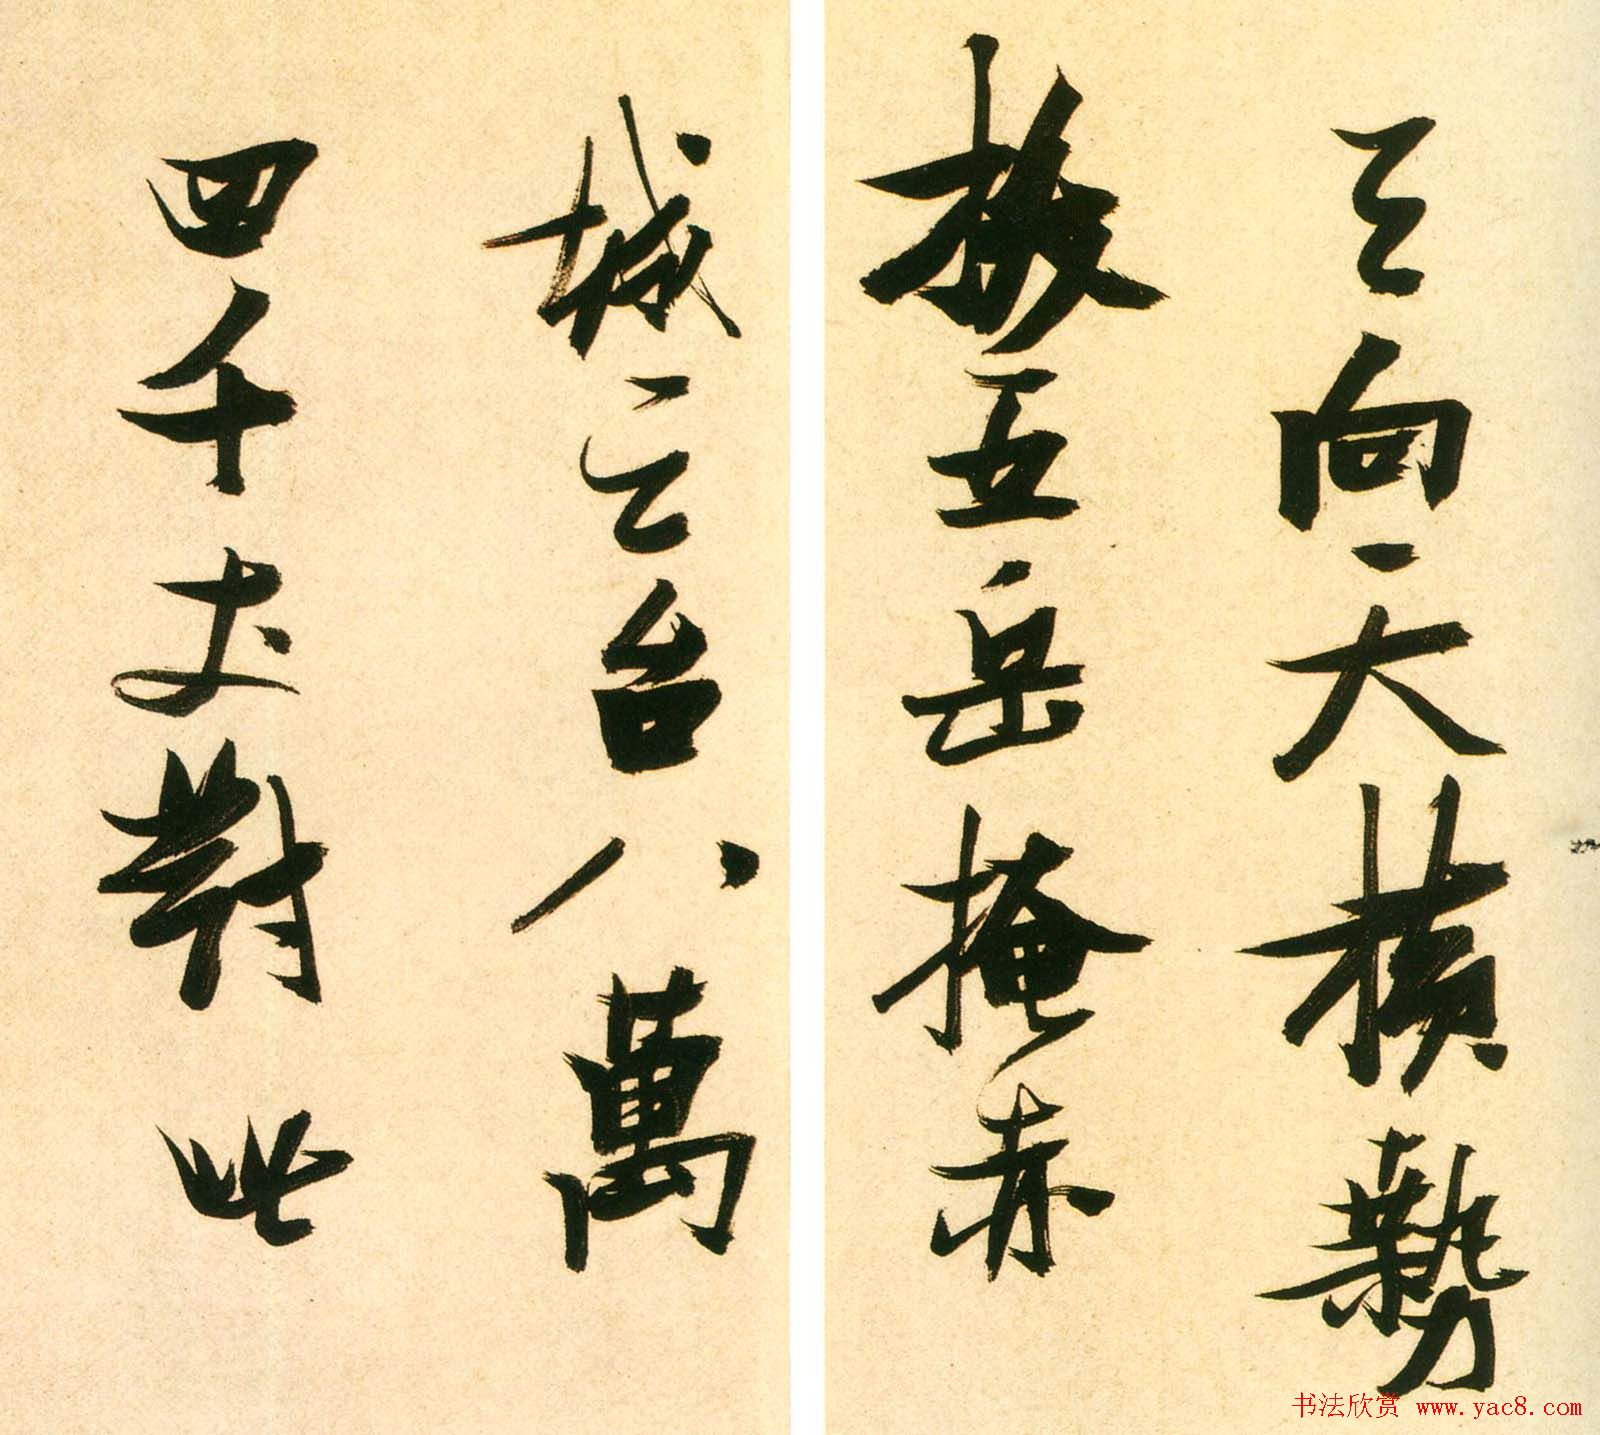 天向天橫勢
拔五岳掩赤
城天台八萬
四千丈對此
书法欣赏 www.yac8.com